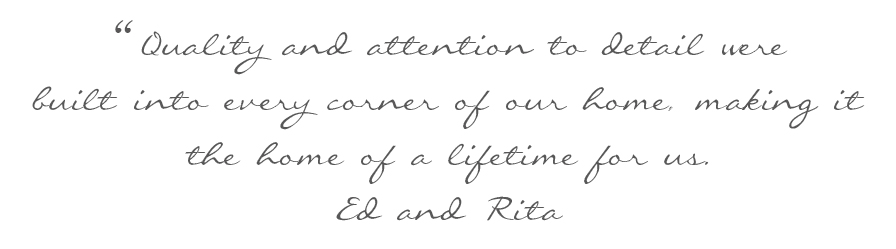 “Quality and attention to detail were
built into every corner of our home, making it
the home of a lifetime for us.
Ed and Rita